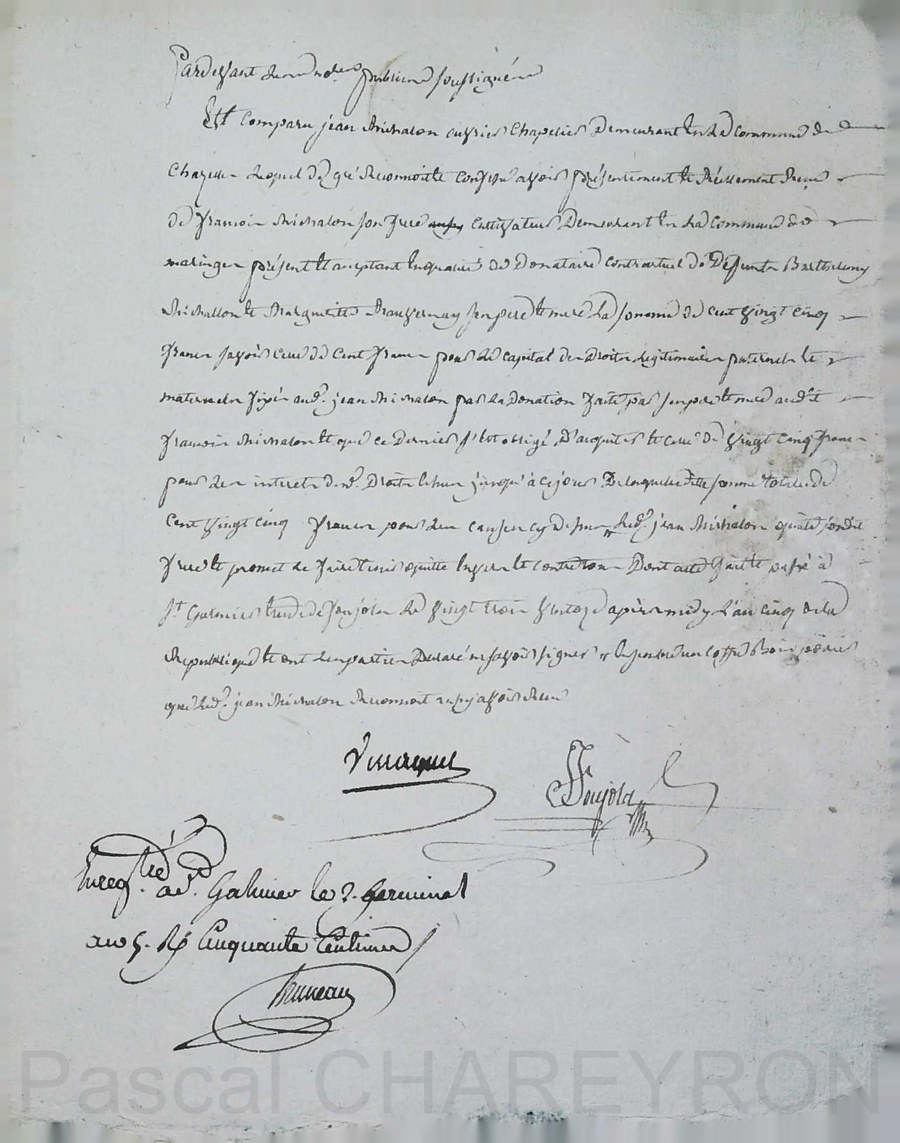 Pardevant les notaires publics soussignés
Est comparu jean Michalon ouvrier chapelier demeurant en la commune de
Chazelle lequel de gré reconnoit et confesse avoir présentement et réellement reçu
de françois Michalon son frere cultivateur demeurant en la commune de
maringes présent et acceptant en qualité de donataire contractuel de deffunts Barthelemy
Michallon et Marguerite ses pere et mere la somme de cent vingt cinq
francs savoir celle de cent francs pour le capital des droits légitimaires paternels et
maternels fixés aud. jean Michalon par la donation faite par ses pere et mere aud.t
francois Michalon et que ce dernier s'est obligé d'acquiter et celle de vingt cinq francs
pour les interets d. droits échus jusqu'à ce jour De laquelle ditte somme totale de
Cent vingt cinq francs pour les causes cy dessus led. jean Michalon quitte sondit
frere et promet le faire tenir quitte envers et contre tous Dont acte fait et passé à
St Galmier étude de Poujola le vingt trois ventose après midy l'an cinq de la
Republique et ont les parties déclaré ne savoir signer
que led. jean Michalon reconnoit aussy avoir reçu
Enregtré a St. Galmier le 2. Germinal
an 5. R/ Cinquante Centimes
Bruneau
Pascal CHAREYRON